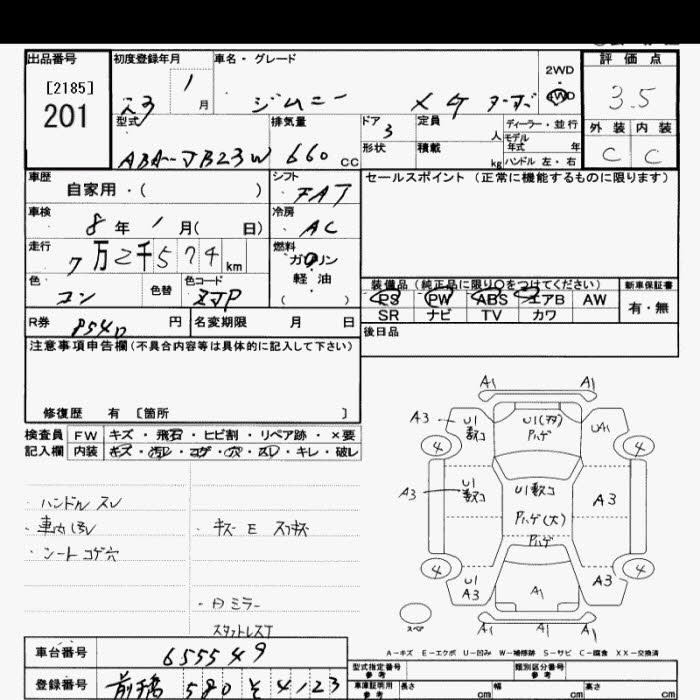 出品番号 初度登録年月 車名・グレード 2WD 評価点
[2185] 1 月 ジムニー 4WD 3.5
201
型式 排気量 ドア 定員 人 ディーラー・並行 外装 内装
ABA-JB23W 660 cc 3 モデル年式 年 C C
形状 積載 kg ハンドル 左・右
車歴 シフト セールスポイント (正常に機能するものに限ります)
自家用・( ) FAT
車検 冷房
8 年 1 月( 日) AC
走行 燃料
7万2千574 km ガソリン
色 色替 色コード 軽油 装備品 (純正品に限り○をつけてください) 新車保証書
コン ZJP ( ) PS PW ABS エアB AW 有・無
SR ナビ TV カワ
R券 8540 円 名変期限 月 日 後日品
注意事項申告欄(不具合内容等は具体的に記入して下さい)
修復歴 有 〔箇所 〕
検査員 FW キズ・飛石・ヒビ割・リペア跡・×要
記入欄 内装 キズ・汚レ・コゲ・穴・スレ・キレ・破レ
・ハンドル スレ
・車内 汚レ ・キズ E スリキズ
・シート コゲ穴
・ミラー
A1 A1
A3 U1 数コ Pハゲ UA1
4 4
A3 U1 数コ U1数コ A3
Pハゲ(大)
Pハゲ
4 4
U1 A3 A1 A3
A1 A1 A1
スペア
A-キズ E-エクボ U-凹み W-補修跡 S-サビ C-腐食 XX-交換済
車台番号 655549 型式指定番号 参考 類別区分番号 参考
登録番号 前橋 580 そ 4123 車庫証明用 参考 長さ cm 幅 cm 高さ cm